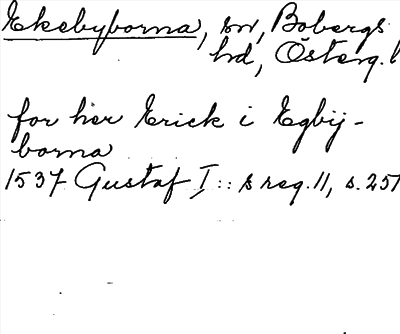 Ekebyborna, sn, Bobergs
hd, Österg. l
for her Erick i Egbij-
borna
1537 Gustaf I:: s reg. 11, s. 251